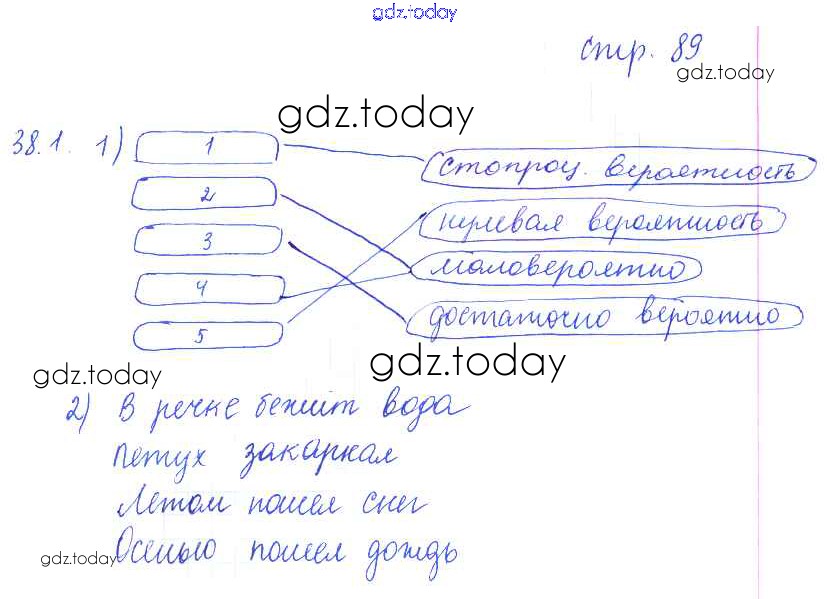 gdz.today
стр. 89
gdz.today
gdz.today
38.1. 1) 1 стопроц. вероятность
2 нулевая вероятность
3 маловероятно
4 достаточно вероятно
5
gdz.today
gdz.today
2) В речке бежит вода
Петух закаркал
Летом пошел снег
gdz.today Осенью пошел дождь